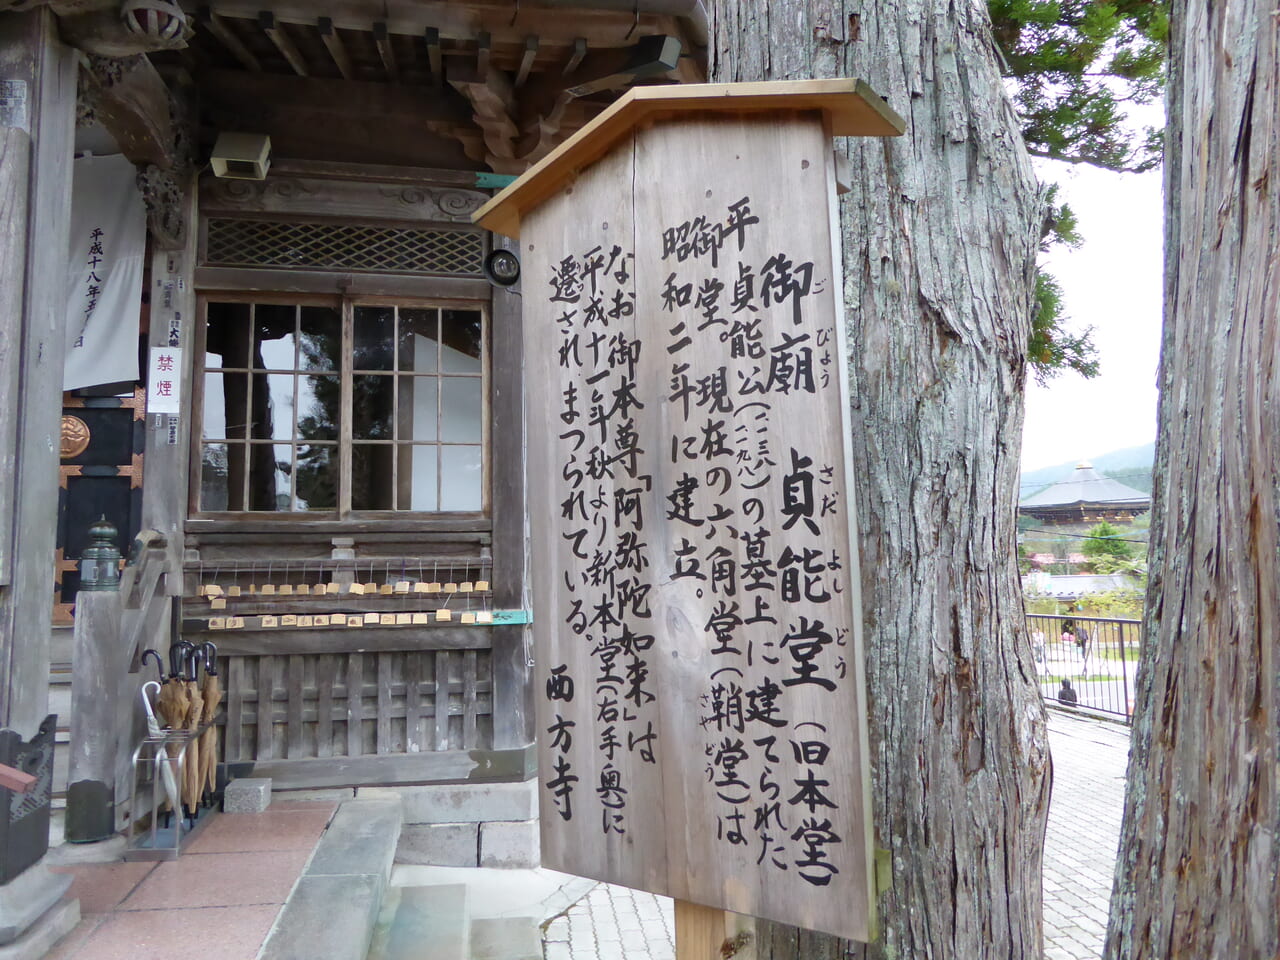 御廟 貞能堂(旧本堂)
ごびょう さだよしどう
平貞能公(一一三八)の墓上に建てられた
(一一九八)
御堂。現在の六角堂(鞘堂)は
さやどう
昭和二年に建立。
なお御本尊「阿弥陀如来」は
平成十一年秋より新本堂(右手奥)に
遷されまつられている。
西方寺
禁煙
平成十八年